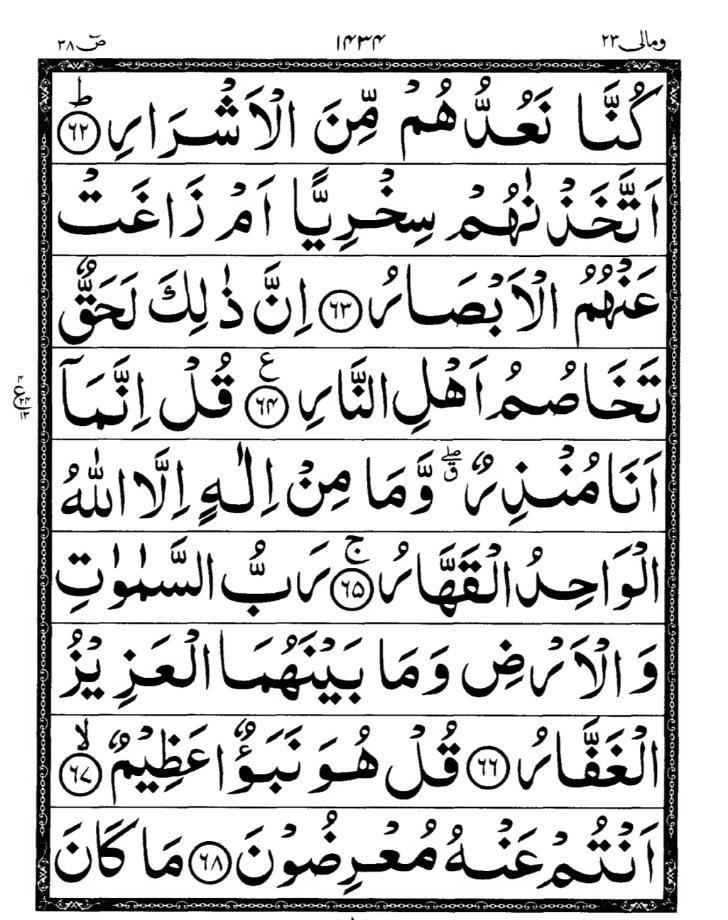 ومالی ۲۳ ۱۴۳۴ صٓ ۳۸
كُنَّا نَعُدُّهُمْ مِّنَ الْاَشْرَارِ ؕ‏﴿۶۲﴾
اَتَّخَذْنٰهُمْ سِخْرِيًّا اَمْ زَاغَتْ
عَنْهُمُ الْاَبْصَارُ ﴿۶۳﴾ اِنَّ ذٰلِكَ لَحَقٌّ
تَخَاصُمُ اَهْلِ النَّارِ ﴿۶۴﴾ ع قُلْ اِنَّمَاۤ
اَنَا مُنْذِرٌ ۖق وَّمَا مِنْ اِلٰهٍ اِلَّا اللّٰهُ
الْوَاحِدُ الْقَهَّارُ ۚ﴿۶۵﴾ رَبُّ السَّمٰوٰتِ
وَالْاَرْضِ وَمَا بَيْنَهُمَا الْعَزِيْزُ
الْغَفَّارُ ﴿۶۶﴾ قُلْ هُوَ نَبَؤٌا عَظِيْمٌ ۙ﴿۶۷﴾
اَنْتُمْ عَنْهُ مُعْرِضُوْنَ ﴿۶۸﴾ مَا كَانَ